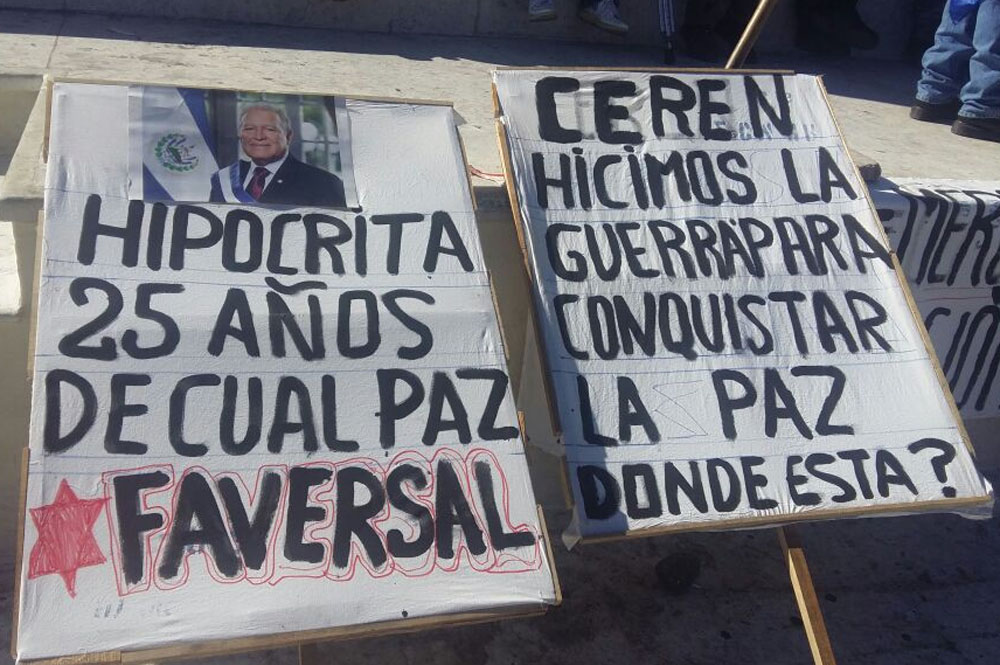 HIPOCRITA
25 AÑOS
DE CUAL PAZ
FAVERSAL
CEREN
HICIMOS LA
GUERRA PARA
CONQUISTAR
LA PAZ
DONDE ESTA?